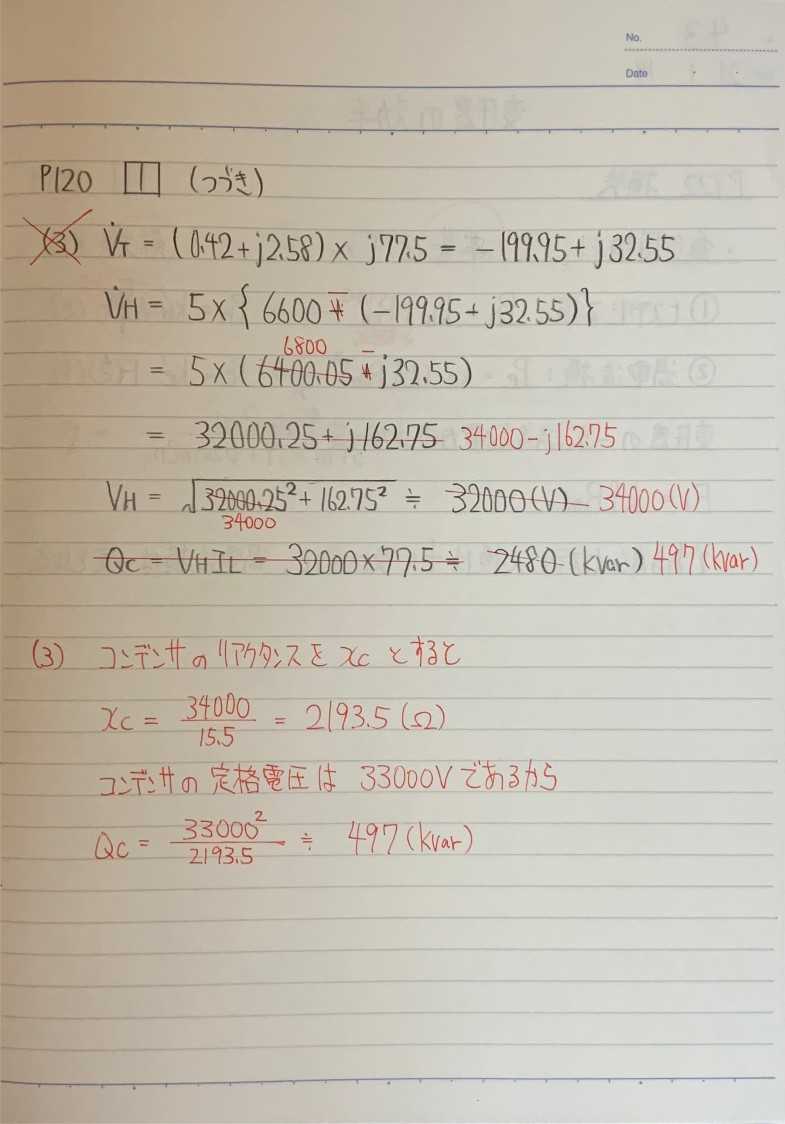 No.
Date
P120 □□ (つづき)
(3) V̇T = (0.42+j2.58)× j77.5 = -199.95+j32.55
V̇H = 5×{6600 - (-199.95+j32.55)}
6800 -
= 5×(6400.05 + j32.55)
= 32000.25+j162.75 34000-j162.75
VH = √32000.25²+162.75² ≒ 32000(V) 34000(V)
34000
Qc = VHIL = 32000×77.5 ≒ 2480(kvar) 497(kvar)
(3) コンデンサのリアクタンスをxcとすると
xc = 34000/15.5 = 2193.5(Ω)
コンデンサの定格電圧は 33000Vであるから
Qc = 33000²/2193.5 ≒ 497(kvar)